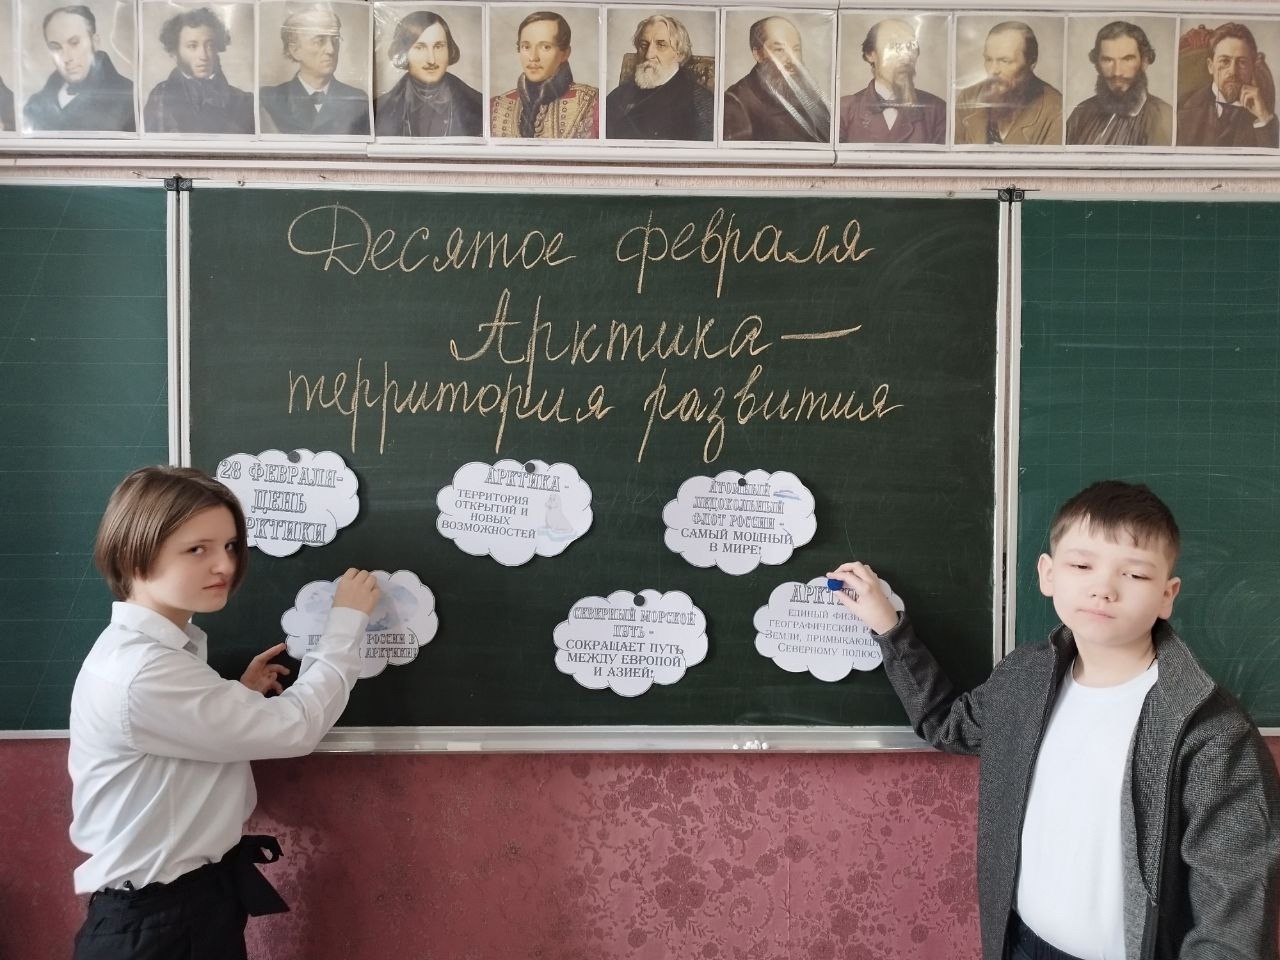 Десятое февраля
Арктика –
территория развития
28 ФЕВРАЛЯ-
ДЕНЬ
АРКТИКИ
АРКТИКА -
ТЕРРИТОРИЯ
ОТКРЫТИЙ И
НОВЫХ
ВОЗМОЖНОСТЕЙ
АТОМНЫЙ
ЛЕДОКОЛЬНЫЙ
ФЛОТ РОССИИ -
САМЫЙ МОЩНЫЙ
В МИРЕ!
РОССИИ В
АРКТИКИ!
СЕВЕРНЫЙ МОРСКОЙ
ПУТЬ -
СОКРАЩАЕТ ПУТЬ
МЕЖДУ ЕВРОПОЙ
И АЗИЕЙ!
АРКТИ
ЕДИНЫЙ ФИЗИ
ГЕОГРАФИЧЕСКИЙ Р
ЗЕМЛИ, ПРИМЫКАЮЩ
СЕВЕРНОМУ ПОЛЮСУ